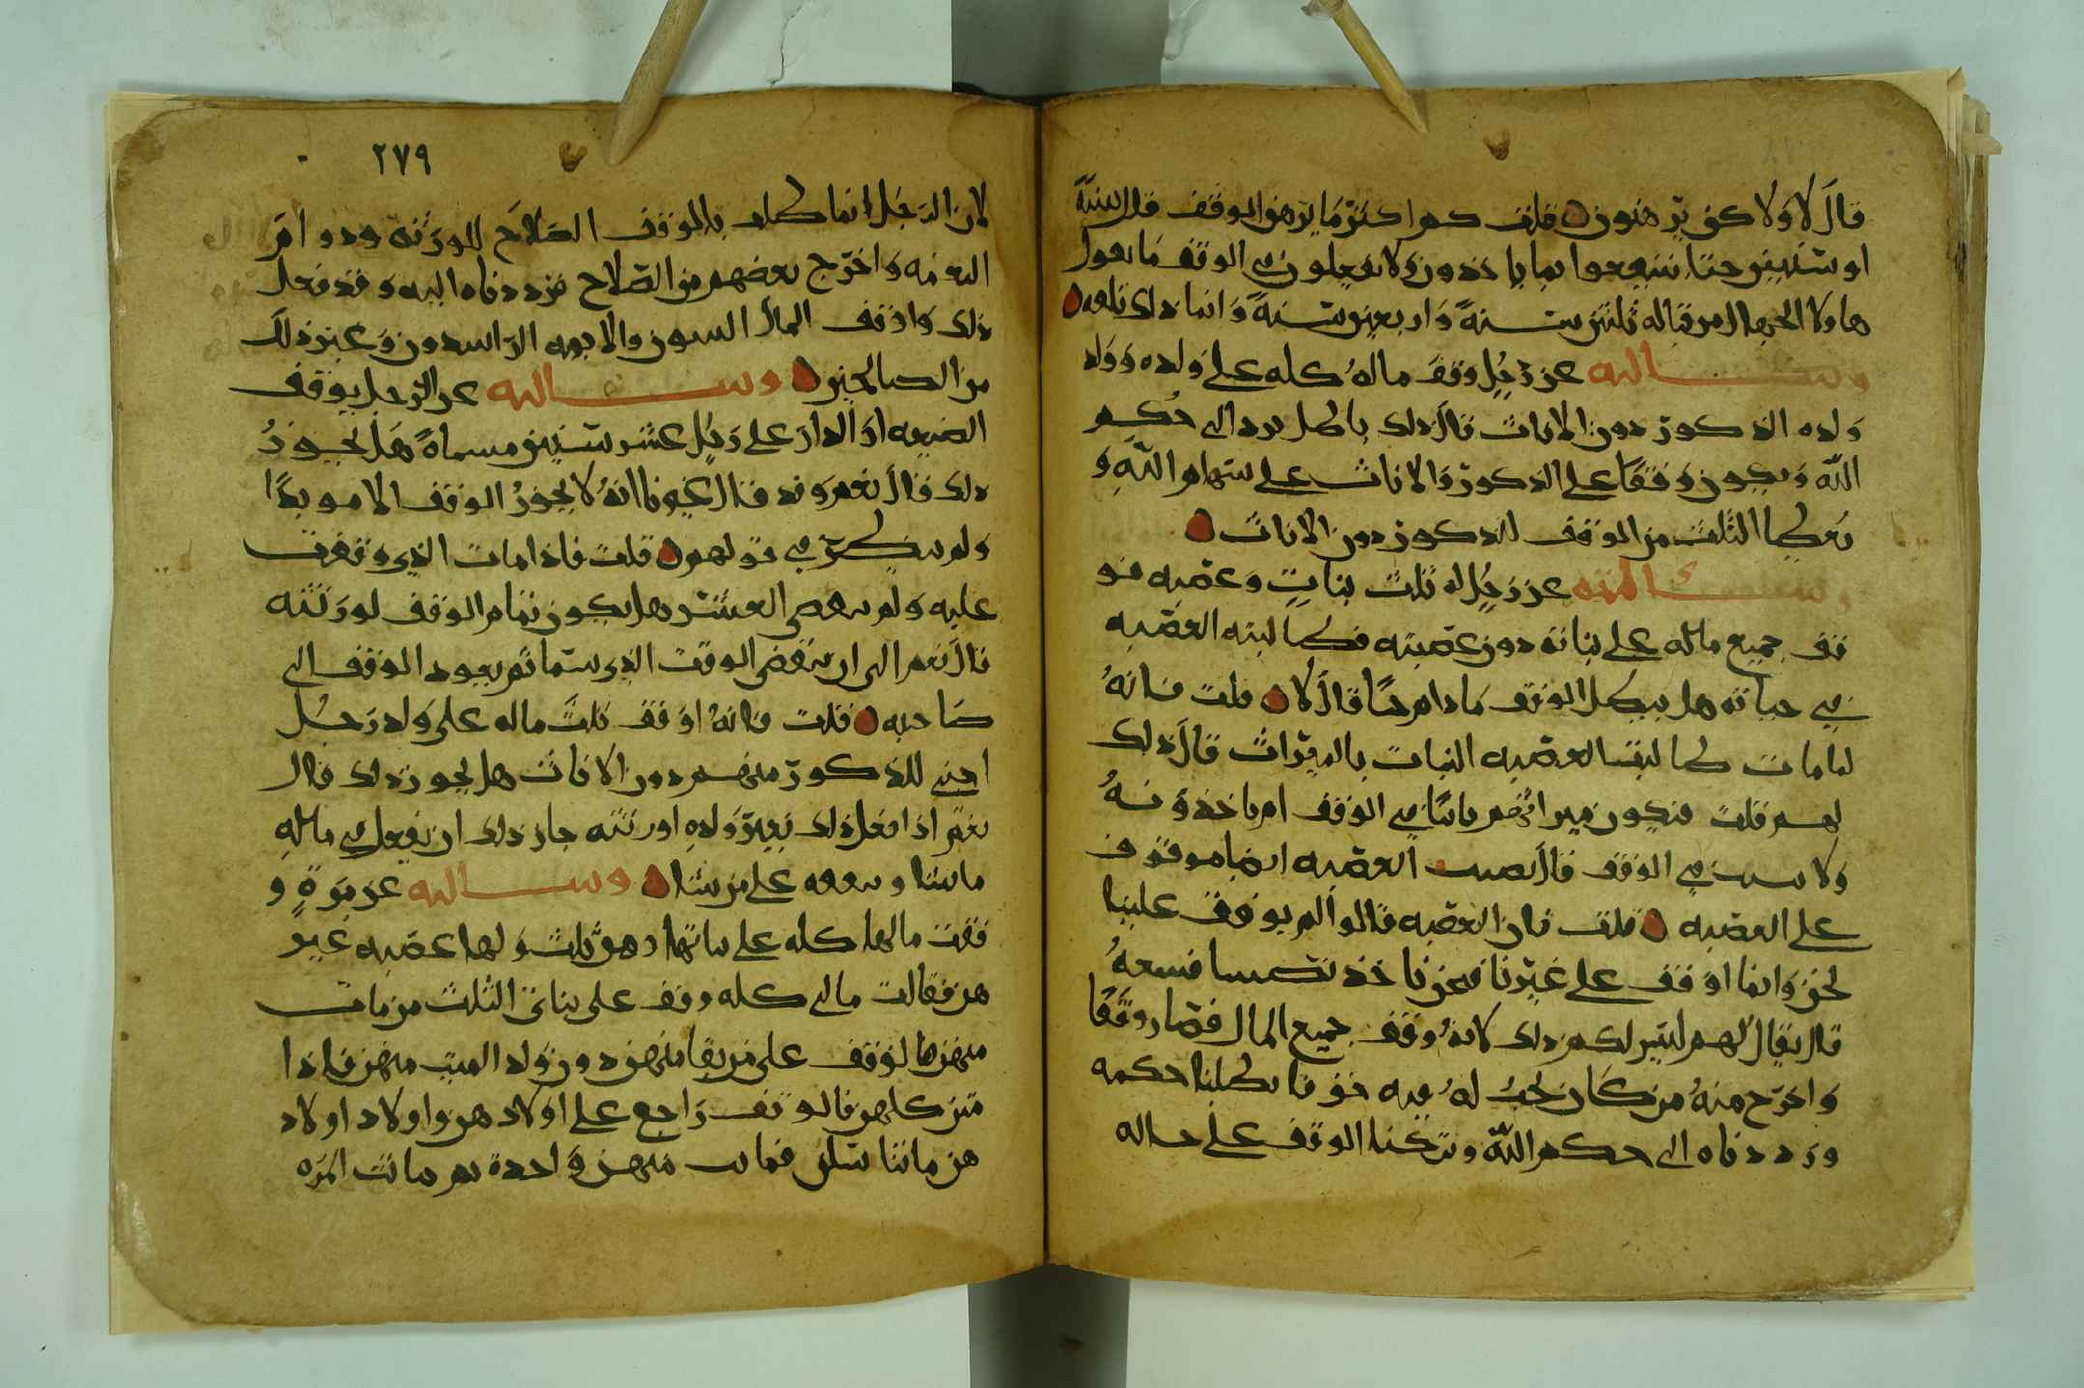 قال لا ولا كف يرهنون قلت كم اكثر ما يرهن الوقف قال سنة
او سنتين حتا ينتفعوا بما ياخذون ولا يفعلون في الوقف ما يعول
هاولا الجهال من قباله ثلثين سنة واربعين سنة وانما ذلك تلعب
وسالته عن رجل وقف ماله كله على ولده وولد
ولده الذكور دون الاناث قال ذلك باطل يرد الى حكم
الله ويكون وقفا على الذكور والاناث على سهام الله و
يعطا الثلث من الوقف للذكور دون الاناث
وسالته عن رجل له ثلث بنات وعصبه فو
قف جميع ماله على بناته دون عصبته فطالبته العصبه
في حياته هل يبطل الوقف ما دام حيا قال لا قلت فانه
لما مات طالبت العصبه البنات بالميراث قال ذلك
لهم قلت فيكون ميراثهم ثابتا في الوقف ام ياخذونه
ولا يثبت في الوقف قال نصيب العصبه ايضا موقوف
على العصبه قلت فان العصبه قالوا لم يوقف علينا
نحن وانما اوقف على غيرنا فنحن ناخذ نصيبنا فنبيعه
قال يقال لهم ليس لكم ذلك لانه وقف جميع المال فصار وقفا
واخرج منه من كان يجب له فيه حق فابطلنا حكمه
ورددناه الى حكم الله وتركنا الوقف على حاله
٢٧٩
لان الرجل انما طلب بالموقف الصلاح للورثه
واخرج بعضهم من الصلاح فرددناه اليه وقد فعل
ذلك واوقف المال
من الصالحين وسالته عن الرجل يوقف
الضيعه او الدار على رجل عشر سنين مسماة هل يجوز
ذلك قال نعم وقد قال غيرنا انه لا يجوز الوقف الا موبدا
ولم ننظر في قولهم قلت فاذا مات الذي وقفت
عليه ولم تنقص العشر هل يكون تمام الوقف لورثته
قال نعم الى ان ينقضي الوقت الذي سما ثم يعود الوقف الى
صاحبه قلت فانه اوقف ثلث ماله على ولد رجل
اجنبي للذكور منهم دون الاناث هل يجوز ذلك قال
نعم اذا فعل ذلك بغير ولده او رثته جاز ذلك ان يفعل في ماله
ما شا ويوقفه على من شا وسالته عن مرة و
قفت مالها كله على بناتها وهو ثلث ولها عصبه غير
هن فقالت مالي كله وقف على بناتي الثلث من مات
منهن فالوقف على من بقا منهن دون ولد الميت منهن فاذا
متن كلهن فالوقف راجع على اولادهن واولاد اولاد
هن ما تناسلن فمات منهن واحدة ثم ماتت المره